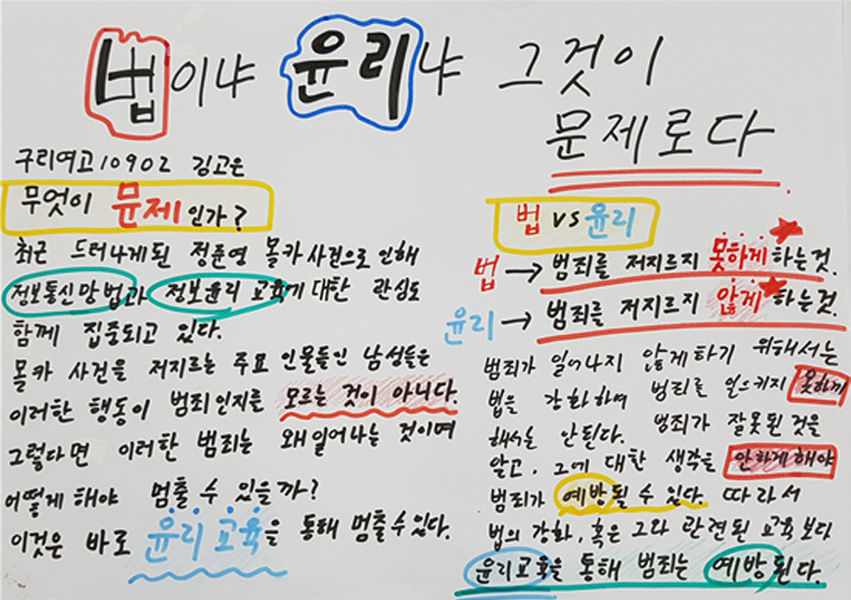 법이냐 윤리냐 그것이
문제로다
구리여고 10902 김고은
무엇이 문제인가?
최근 드러나게된 정준영 몰카사건으로 인해
정보통신망법과 정보윤리 교육에 대한 관심도
함께 집중되고 있다.
몰카 사건을 저지르는 주요 인물들인 남성들은
이러한 행동이 범죄인지를 모르는 것이 아니다.
그렇다면 이러한 범죄는 왜 일어나는 것이며
어떻게 해야 멈출 수 있을까?
이것은 바로 윤리교육을 통해 멈출수있다.
법 vs 윤리
법 → 범죄를 저지르지 못하게 하는것.
윤리 → 범죄를 저지르지 않게 하는것.
범죄가 일어나지 않게하기 위해서는
법을 강화하여 범죄를 일으키지 못하게
해서는 안된다. 범죄가 잘못된 것을
알고, 그에 대한 생각을 안하게해야
범죄가 예방될 수 있다. 따라서
법의 강화, 혹은 그와 관련된 교육보다
윤리교육을 통해 범죄는 예방된다.